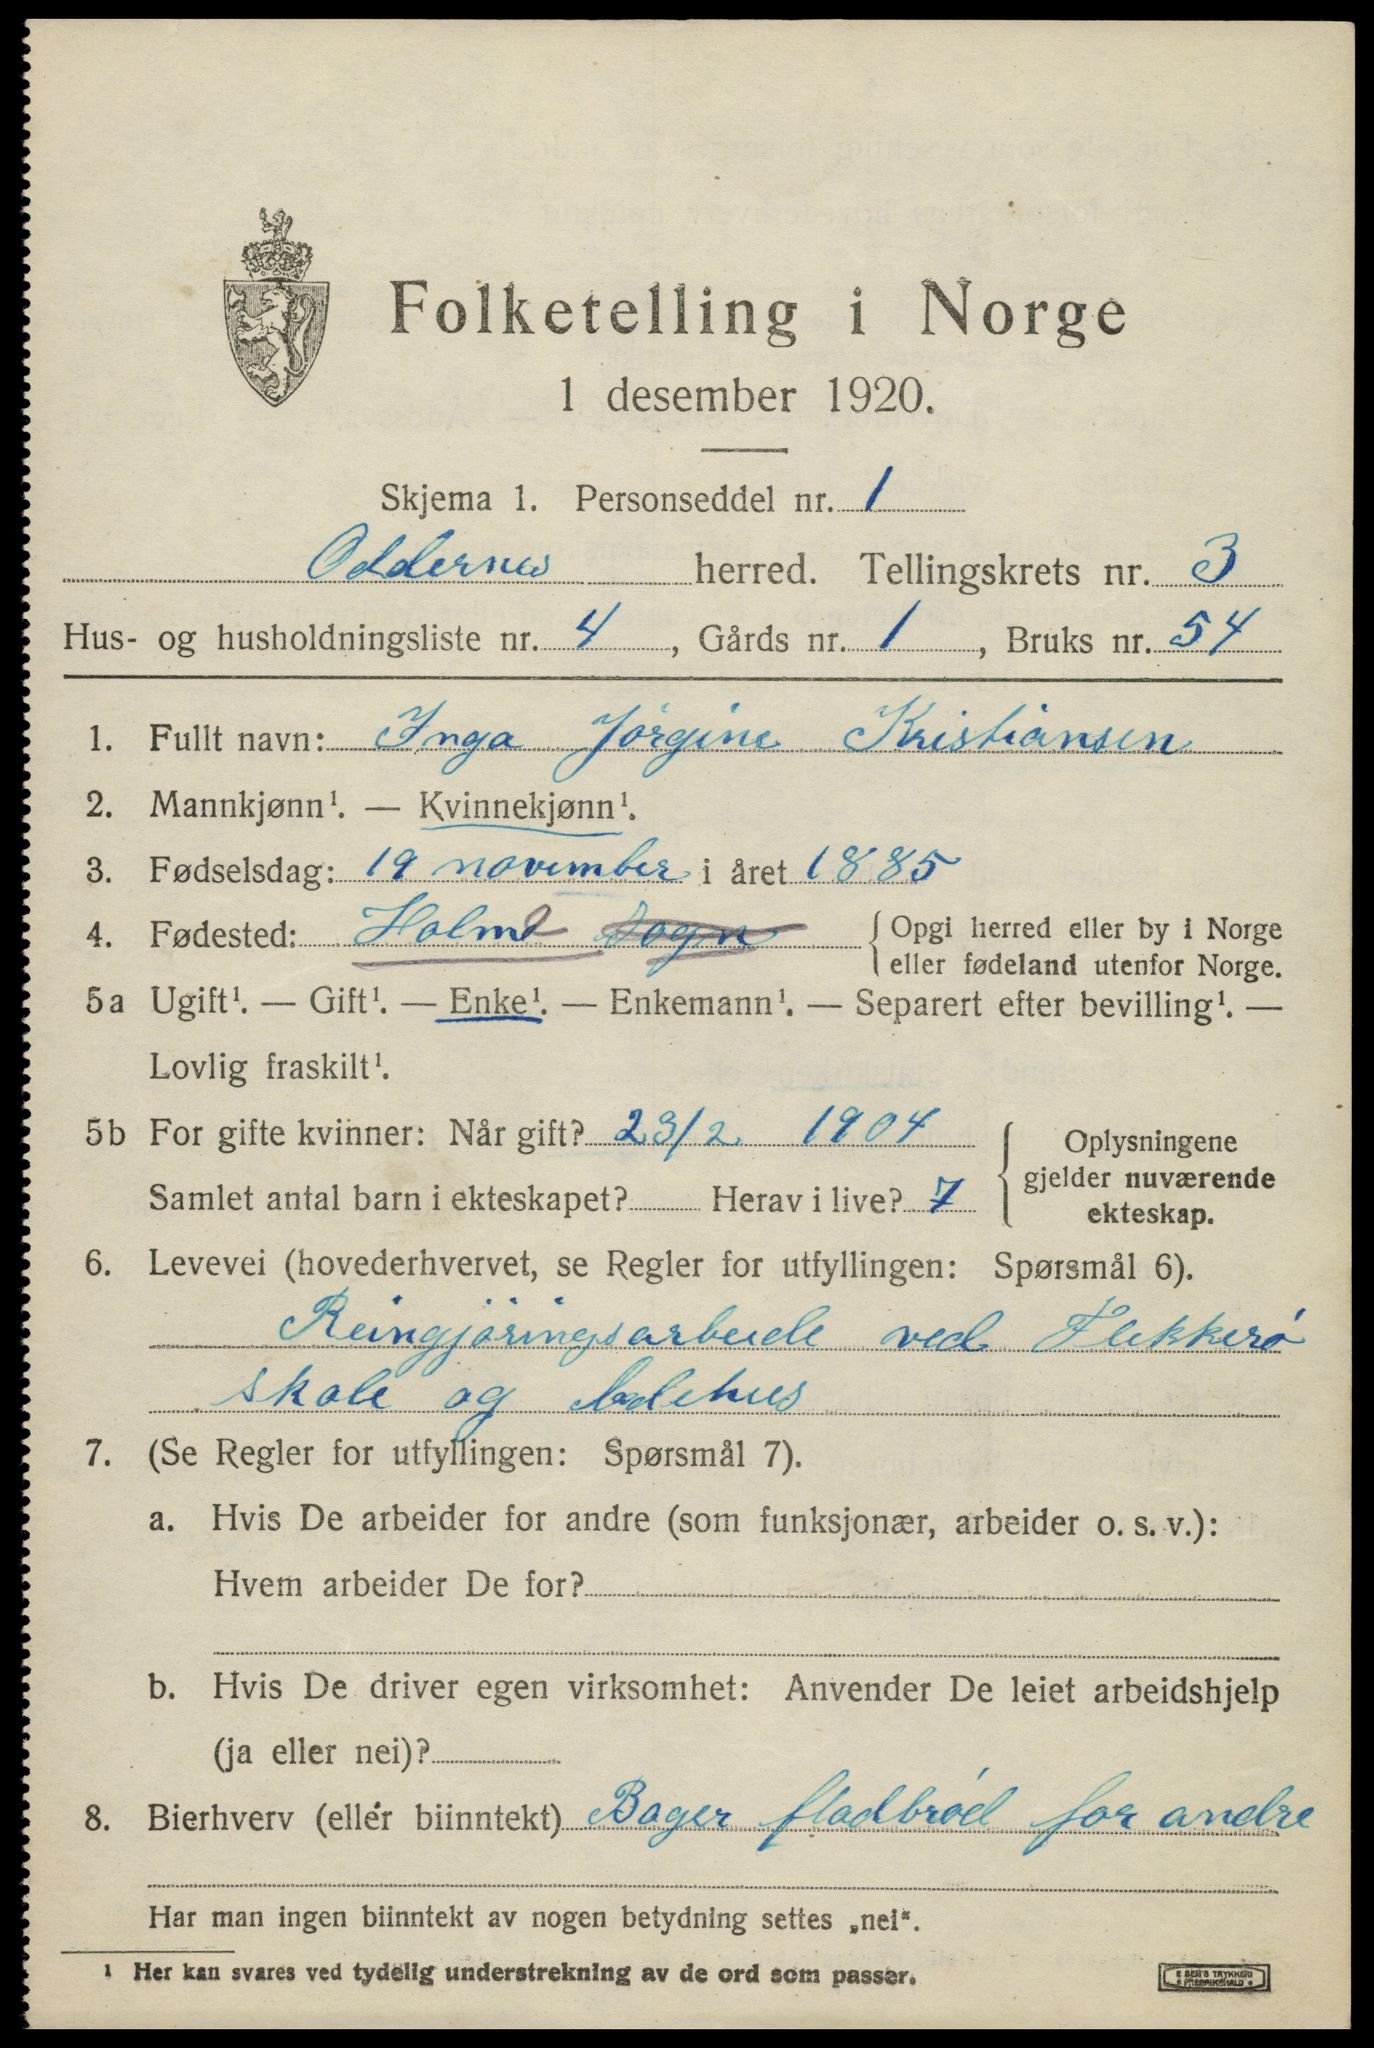 Folketelling i Norge
1 desember 1920.
Skjema 1. Personseddel nr. 1
Oddernes herred. Tellingskrets nr. 3
Hus- og husholdningsliste nr. 4, Gårds nr. 1, Bruks nr. 54
1. Fullt navn: Inga Jörgine Kristiansen
2. Mannkjønn¹. — Kvinnekjønn¹.
3. Fødselsdag: 19 november i året 1885
4. Fødested: Holme Sogn { Opgi herred eller by i Norge
eller fødeland utenfor Norge.
5a Ugift¹. — Gift¹. — Enke¹. — Enkemann¹. — Separert efter bevilling¹. —
Lovlig fraskilt¹.
5b For gifte kvinner: Når gift? 23/2 1904
Samlet antal barn i ekteskapet? Herav i live? 7
{ Oplysningene
gjelder nuværende
ekteskap.
6. Levevei (hovederhvervet, se Regler for utfyllingen: Spørsmål 6).
Reingjöringsarbeide ved Flekkerö
skole og bedehus
7. (Se Regler for utfyllingen: Spørsmål 7).
a. Hvis De arbeider for andre (som funksjonær, arbeider o. s. v.):
Hvem arbeider De for?
b. Hvis De driver egen virksomhet: Anvender De leiet arbeidshjelp
(ja eller nei)?
8. Bierhverv (eller biinntekt) Bager fladbröd for andre
Har man ingen biinntekt av nogen betydning settes „nei“.
¹ Her kan svares ved tydelig understrekning av de ord som passer.
E SEM'S TRYKKERI
FREDRIKSHALD